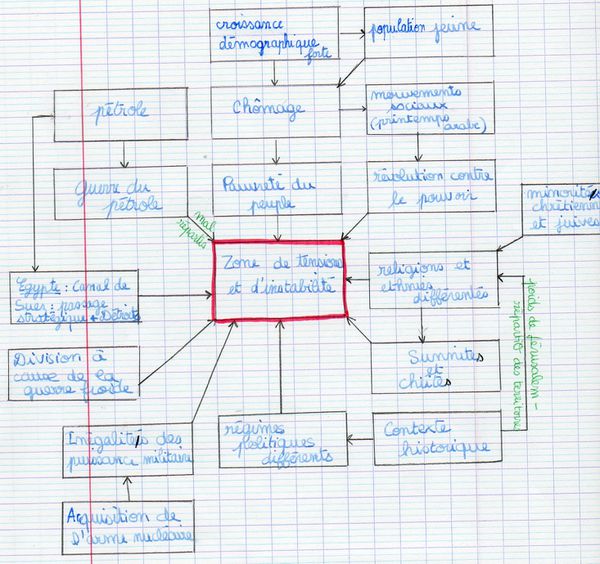 croissance
démographique
forte
population jeune
pétrole
Chômage
mouvements
sociaux
(printemps
arabe)
guerre du
pétrole
Pauvreté du
peuple
révolution contre
le pouvoir
minorités
chrétiennes
et juives
mal
répartis
Zone de tensions
et d'instabilité
religions et
ethnies
différentes
Egypte : Canal de
Suez : passage
stratégique + Détroits
poids de Jérusalem -
répartit° des territoires
Division à
cause de la
guerre froide
Sunnites
et
chiites
Inégalités des
puissance militaire
régimes
politiques
différents
Contexte
historique
Acquisition de
l'arme nucléaire